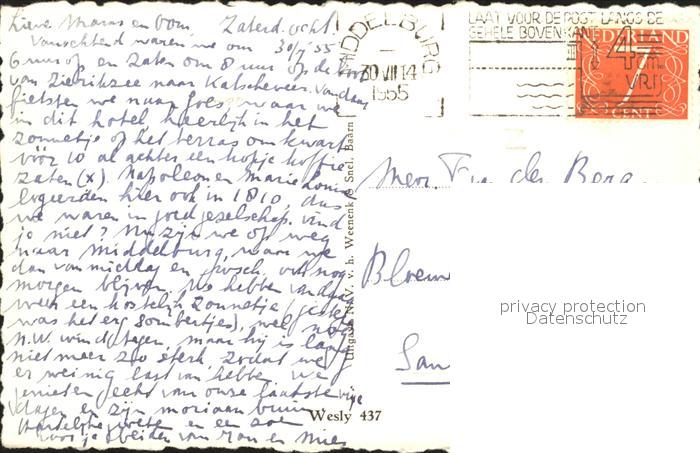 Lieve Mams en Oom, Zaterd. ocht.
Vanochtend waren we om 30/7 '55
6 uur op en zaten om 8 uur op de boot
van Zierikzee naar Katscheveer. Vandaar
fietsten we naar Goes, waar we
in dit hotel heerlijk in het
zonnetje op het terras om kwart
vóór 10 al achter een kopje koffie
zaten (x). Napoleon en Marie Louise
logeerden hier ook in 1810, dus
we waren in goed gezelschap, vind
je niet? Nu zijn we op weg
naar Middelburg, waar we
dan vanmiddag en ook nog
morgen blijven. We hebben vandaag
weer een kostelijk zonnetje (gister
was het erg sombertjes), wel nog
N.W. wind tegen, maar hij is lang
niet meer zoo sterk, zodat we
er weinig last van hebben. We
genieten echt van onze laatste vrije
dagen en zijn moriaan bruin
Hartelijke groeten en een zoen
voor je beiden van en Mies
Uitgave N.V. v. h. Weerenk & Snel, Baarn
Wesly 437
MIDDELBURG
30 VII 14
1955
LAAT VOOR DE POST LANGS DE
GEHELE BOVENKANT
4 cm
VRIJ
NEDERLAND
7
CENT
Mevr. F. v. der Berg
Bloem
San
privacy protection
Datenschutz